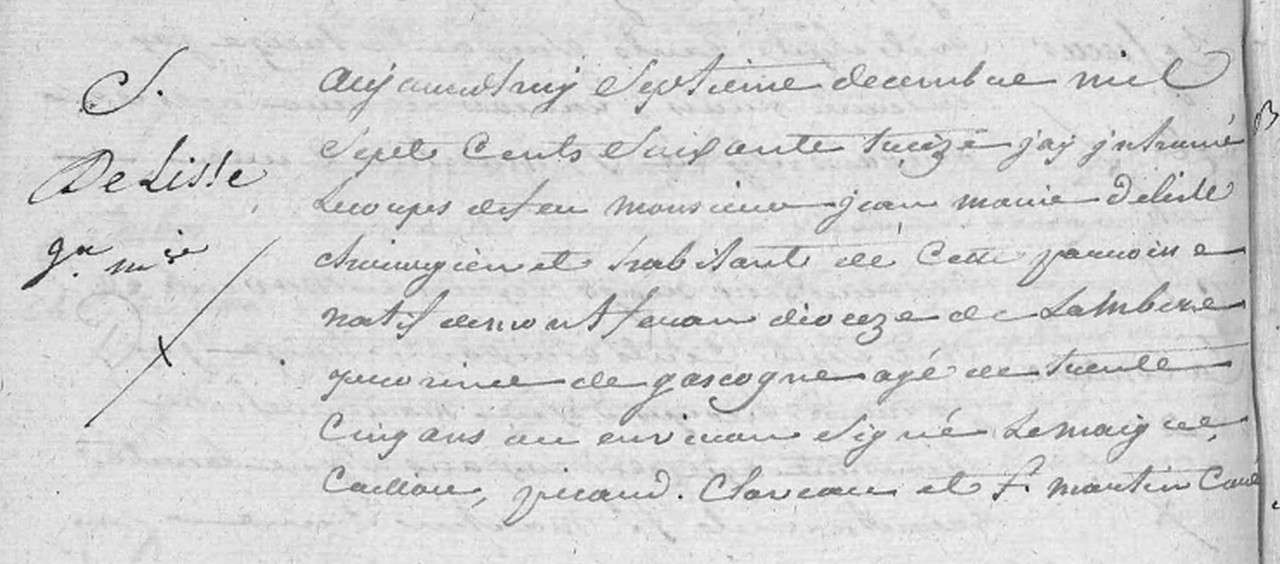 S.
De Lisle
Jn. mie
aujourd'huy Septieme decembre mil
Sept Cents Soixante treize j'ay jnhumé
Le corps de feu monsieur jean marie Delisle
chirurgien et habitant de Cette paroisse
natif de montferran dioceze de Lambere
province de gascogne agé de trente
Cinq ans ou environ Signé Lemaigre,
Caillou, picaud. Claveau et f. martin Curé